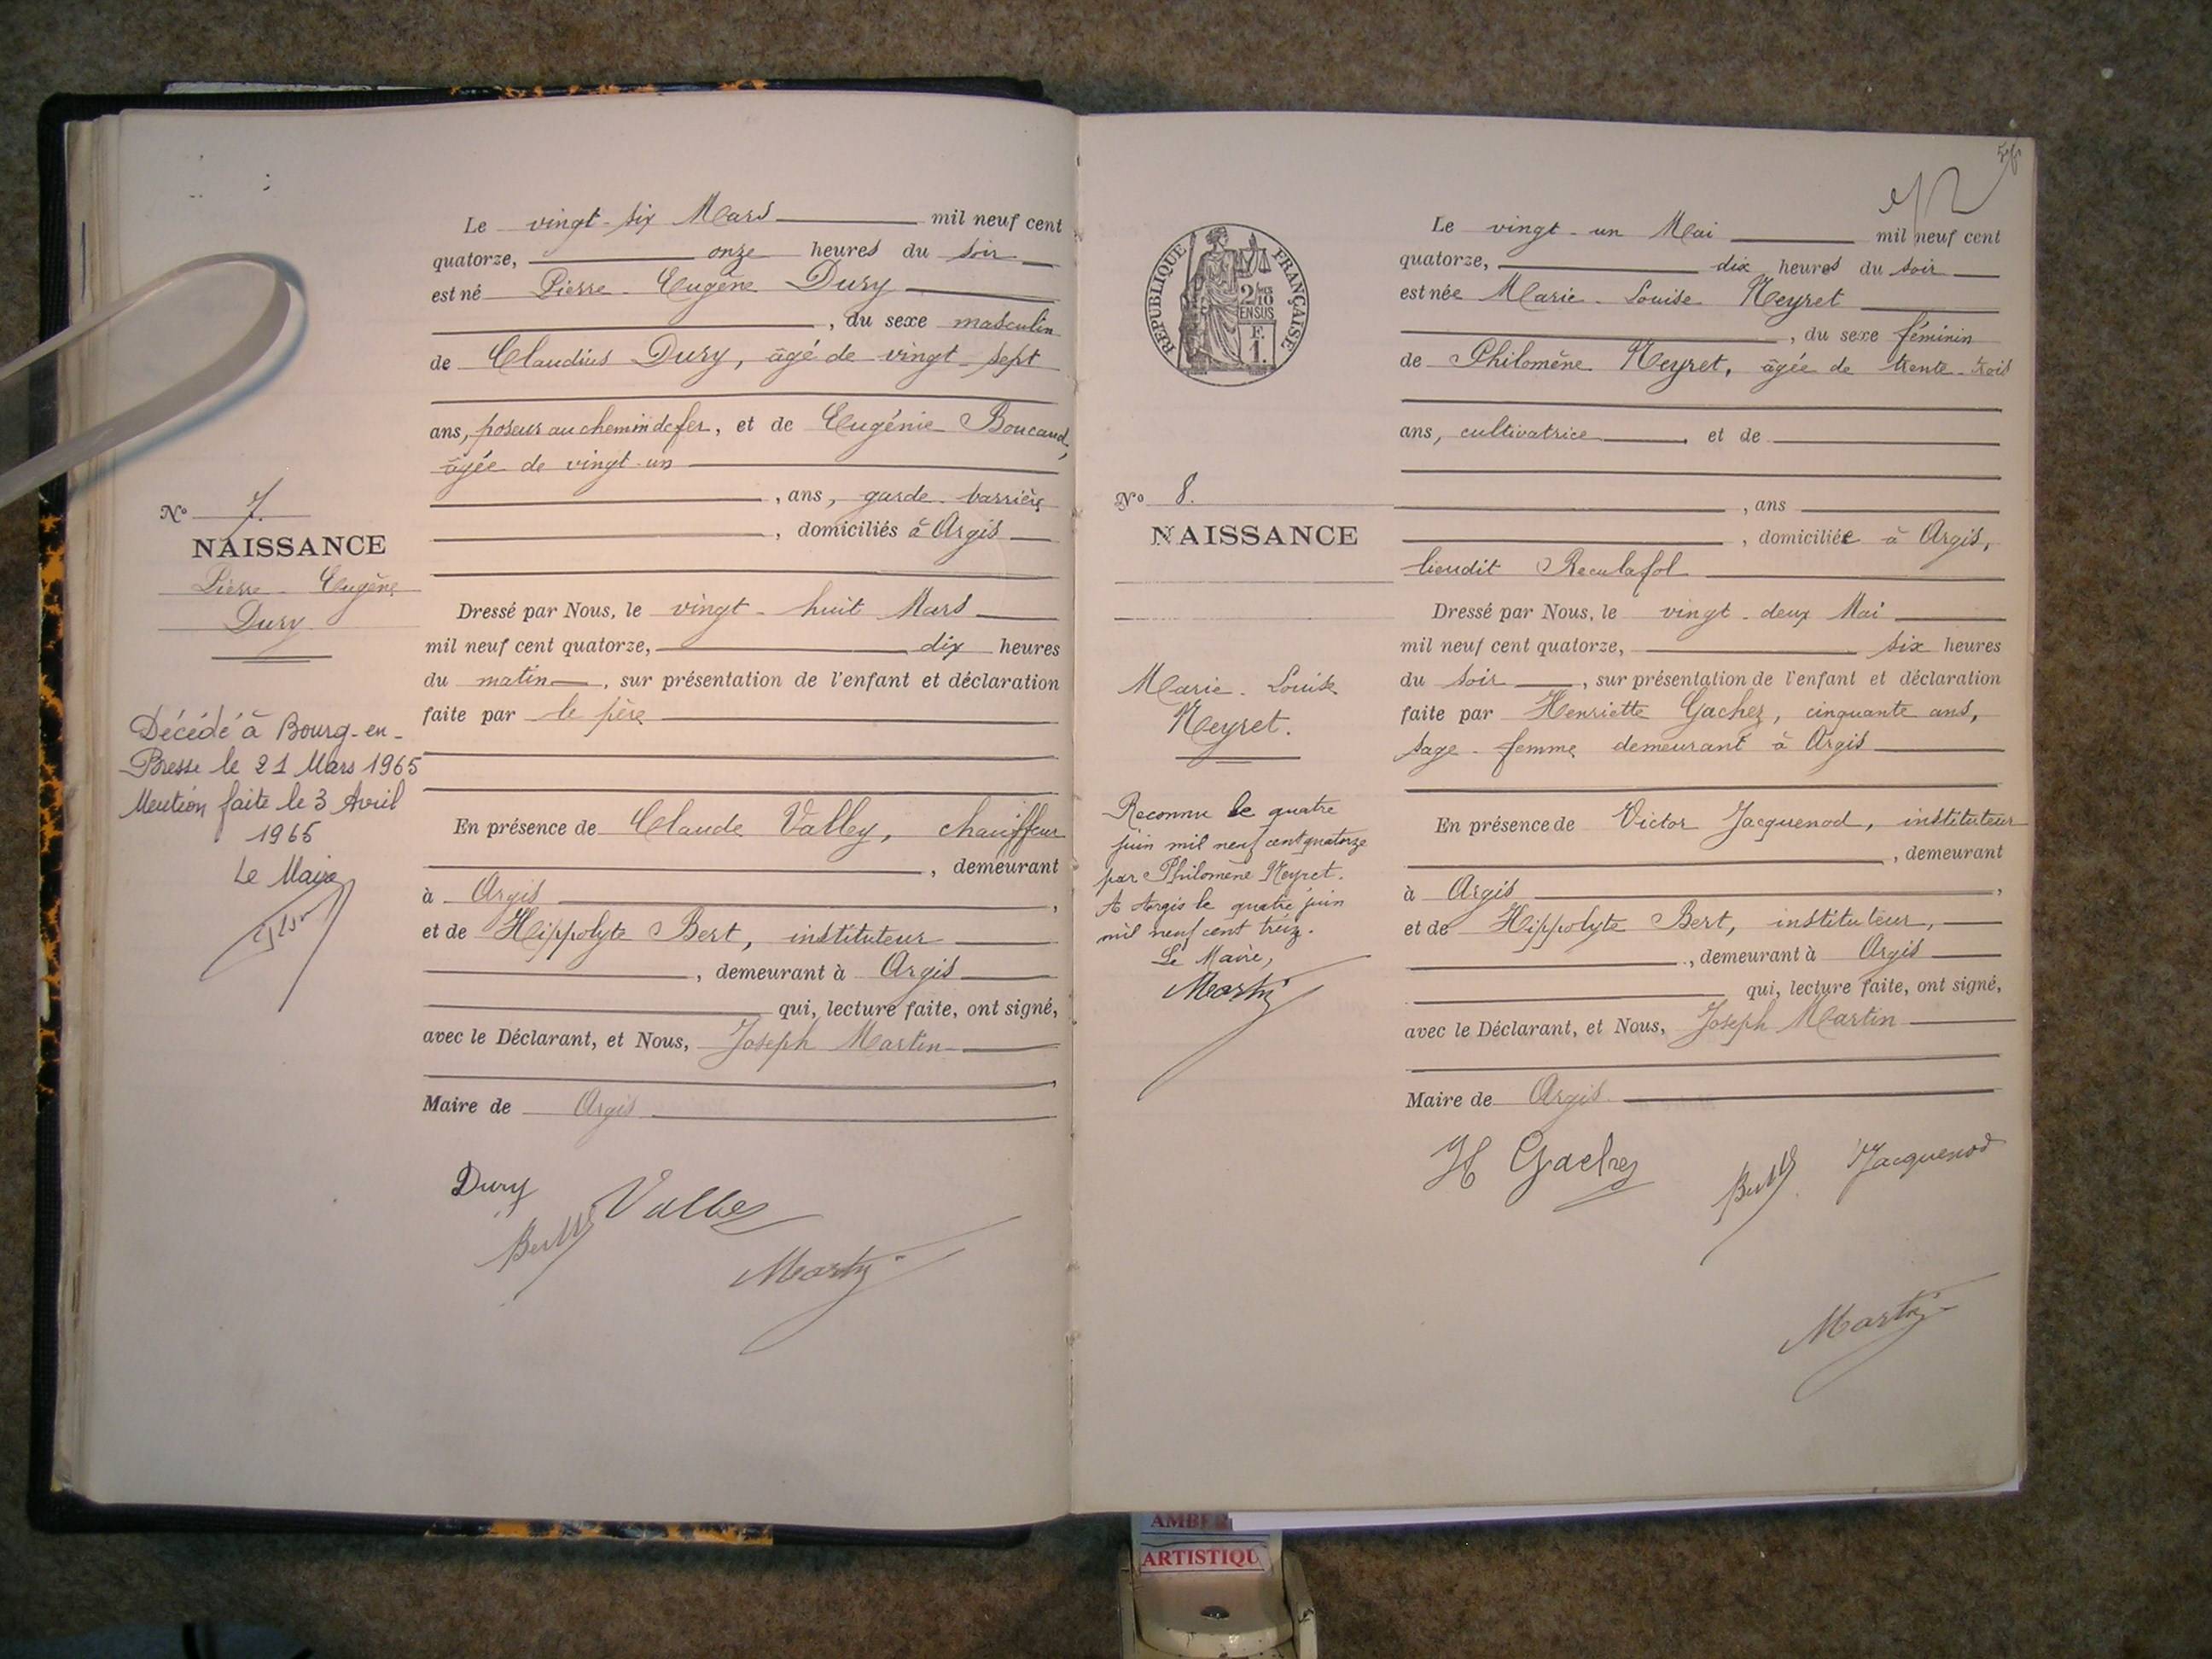 Le vingt-six Mars mil neuf cent
quatorze, onze heures du soir
est né Pierre-Eugène Dury
, du sexe masculin
de Claudius Dury, âgé de vingt-sept
ans, poseur au chemin de fer, et de Eugénie Boucaud,
âgée de vingt-un
, ans, garde-barrière
, domiciliés à Argis
Nº 7.
NAISSANCE
Pierre-Eugène
Dury
Dressé par Nous, le vingt-huit Mars
mil neuf cent quatorze, dix heures
du matin, sur présentation de l'enfant et déclaration
faite par le père
Décédé à Bourg-en-
Bresse le 21 Mars 1965
Mention faite le 3 Avril
1965
Le Maire
En présence de Claude Valley, chauffeur
, demeurant
à Argis,
et de Hippolyte Bert, instituteur
, demeurant à Argis
qui, lecture faite, ont signé,
avec le Déclarant, et Nous, Joseph Martin
,
Maire de Argis
Dury
Bert
Valley
Martin
RÉPUBLIQUE FRANÇAISE
2/10
EN SUS
F.
1.
Le vingt-un Mai mil neuf cent
quatorze, dix heures du soir
est née Marie-Louise Neyret
, du sexe féminin
de Philomène Neyret, âgée de trente-trois
ans, cultivatrice et de
, ans
, domiciliée à Argis,
lieudit Reculafol
Nº 8.
NAISSANCE
Marie-Louise
Neyret.
Dressé par Nous, le vingt-deux Mai
mil neuf cent quatorze, six heures
du soir, sur présentation de l'enfant et déclaration
faite par Henriette Gachez, cinquante ans,
sage-femme demeurant à Argis
Reconnu le quatre
juin mil neuf cent quatorze
par Philomène Neyret.
A Argis le quatre juin
mil neuf cent treiz.
Le Maire,
Martin
En présence de Victor Jacquenod, instituteur
, demeurant
à Argis,
et de Hippolyte Bert, instituteur,
, demeurant à Argis
qui, lecture faite, ont signé,
avec le Déclarant, et Nous, Joseph Martin
Maire de Argis
H Gachez
Bert
Jacquenod
Martin
ARTISTIQU